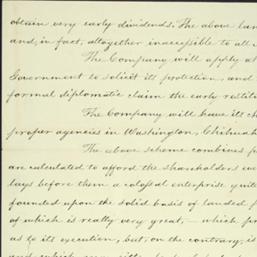 obtain very early dividends. The above lan
and, in fact, altogether inaccessible to all
The Company will apply at
Government to solicit its protection, and
formal diplomatic claim the early restitu
The Company will have its ch
proper agencies in Washington, Chihuah
The above scheme combines p
are calculated to afford the shareholders eve
lays before them a colossal enterprise quite
founded upon the solid basis of landed p
of which is really very great, – which pr
as to its execution, but, on the contrary, is